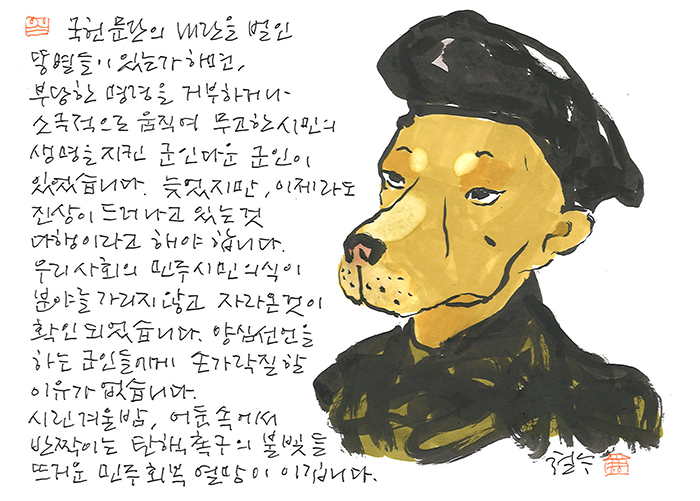 국헌문란의 내란을 벌인
똥별들이 있는가 하면,
부당한 명령을 거부하거나
소극적으로 움직여 무고한 시민의
생명을 지킨 군인다운 군인이
있었습니다. 늦었지만, 이제라도
진상이 드러나고 있는 것
다행이라고 해야 합니다.
우리 사회의 민주시민의식이
분야를 가리지 않고 자라온 것이
확인되었습니다. 양심선언을
하는 군인들에게 손가락질 할
이유가 없습니다.
시린 겨울밤, 어둠 속에서
반짝이는 탄핵촉구의 불빛들
뜨거운 민주회복 열망이 이깁니다.
철수